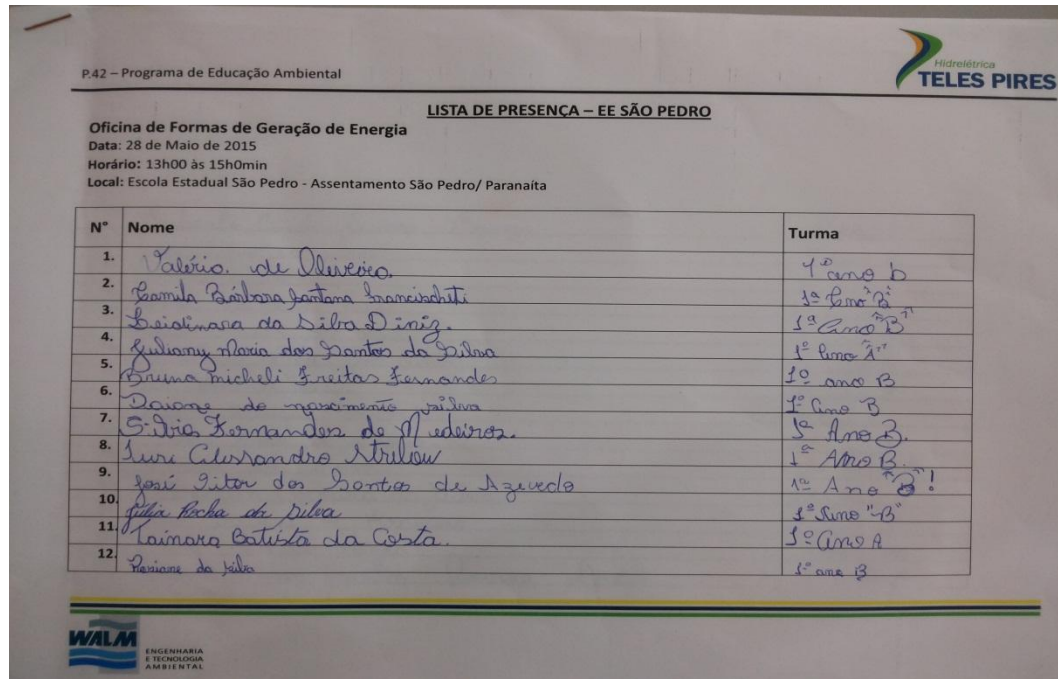 P.42 – Programa de Educação Ambiental
Hidrelétrica
TELES PIRES
LISTA DE PRESENÇA – EE SÃO PEDRO
Oficina de Formas de Geração de Energia
Data: 28 de Maio de 2015
Horário: 13h00 às 15h0min
Local: Escola Estadual São Pedro - Assentamento São Pedro/ Paranaíta
N° Nome Turma
1. Valério. de Oliveira. 1º ano b
2. Camila Bárbara Santana 1º Ano "B"
3. da Silva Diniz. 1º Ano "B"
4. Juliany Maria dos Santos da Silva 1º Ano "A"
5. Bruna Micheli Freitas Fernandes 1º ano B
6. Daiane do nascimento silva 1º Ano B
7. Silvia Fernandes de Medeiros. 1º Ano B.
8. Iure Alessandro 1º Ano B.
9. José Vitor dos Santos de Azevedo 1º Ano "B"!
10. Júlia Rocha da Silva 1º Ano "B"
11. Tainara Batista da Costa. 1º ano A
12. da Silva 1º ano B
WALM
ENGENHARIA
E TECNOLOGIA
AMBIENTAL